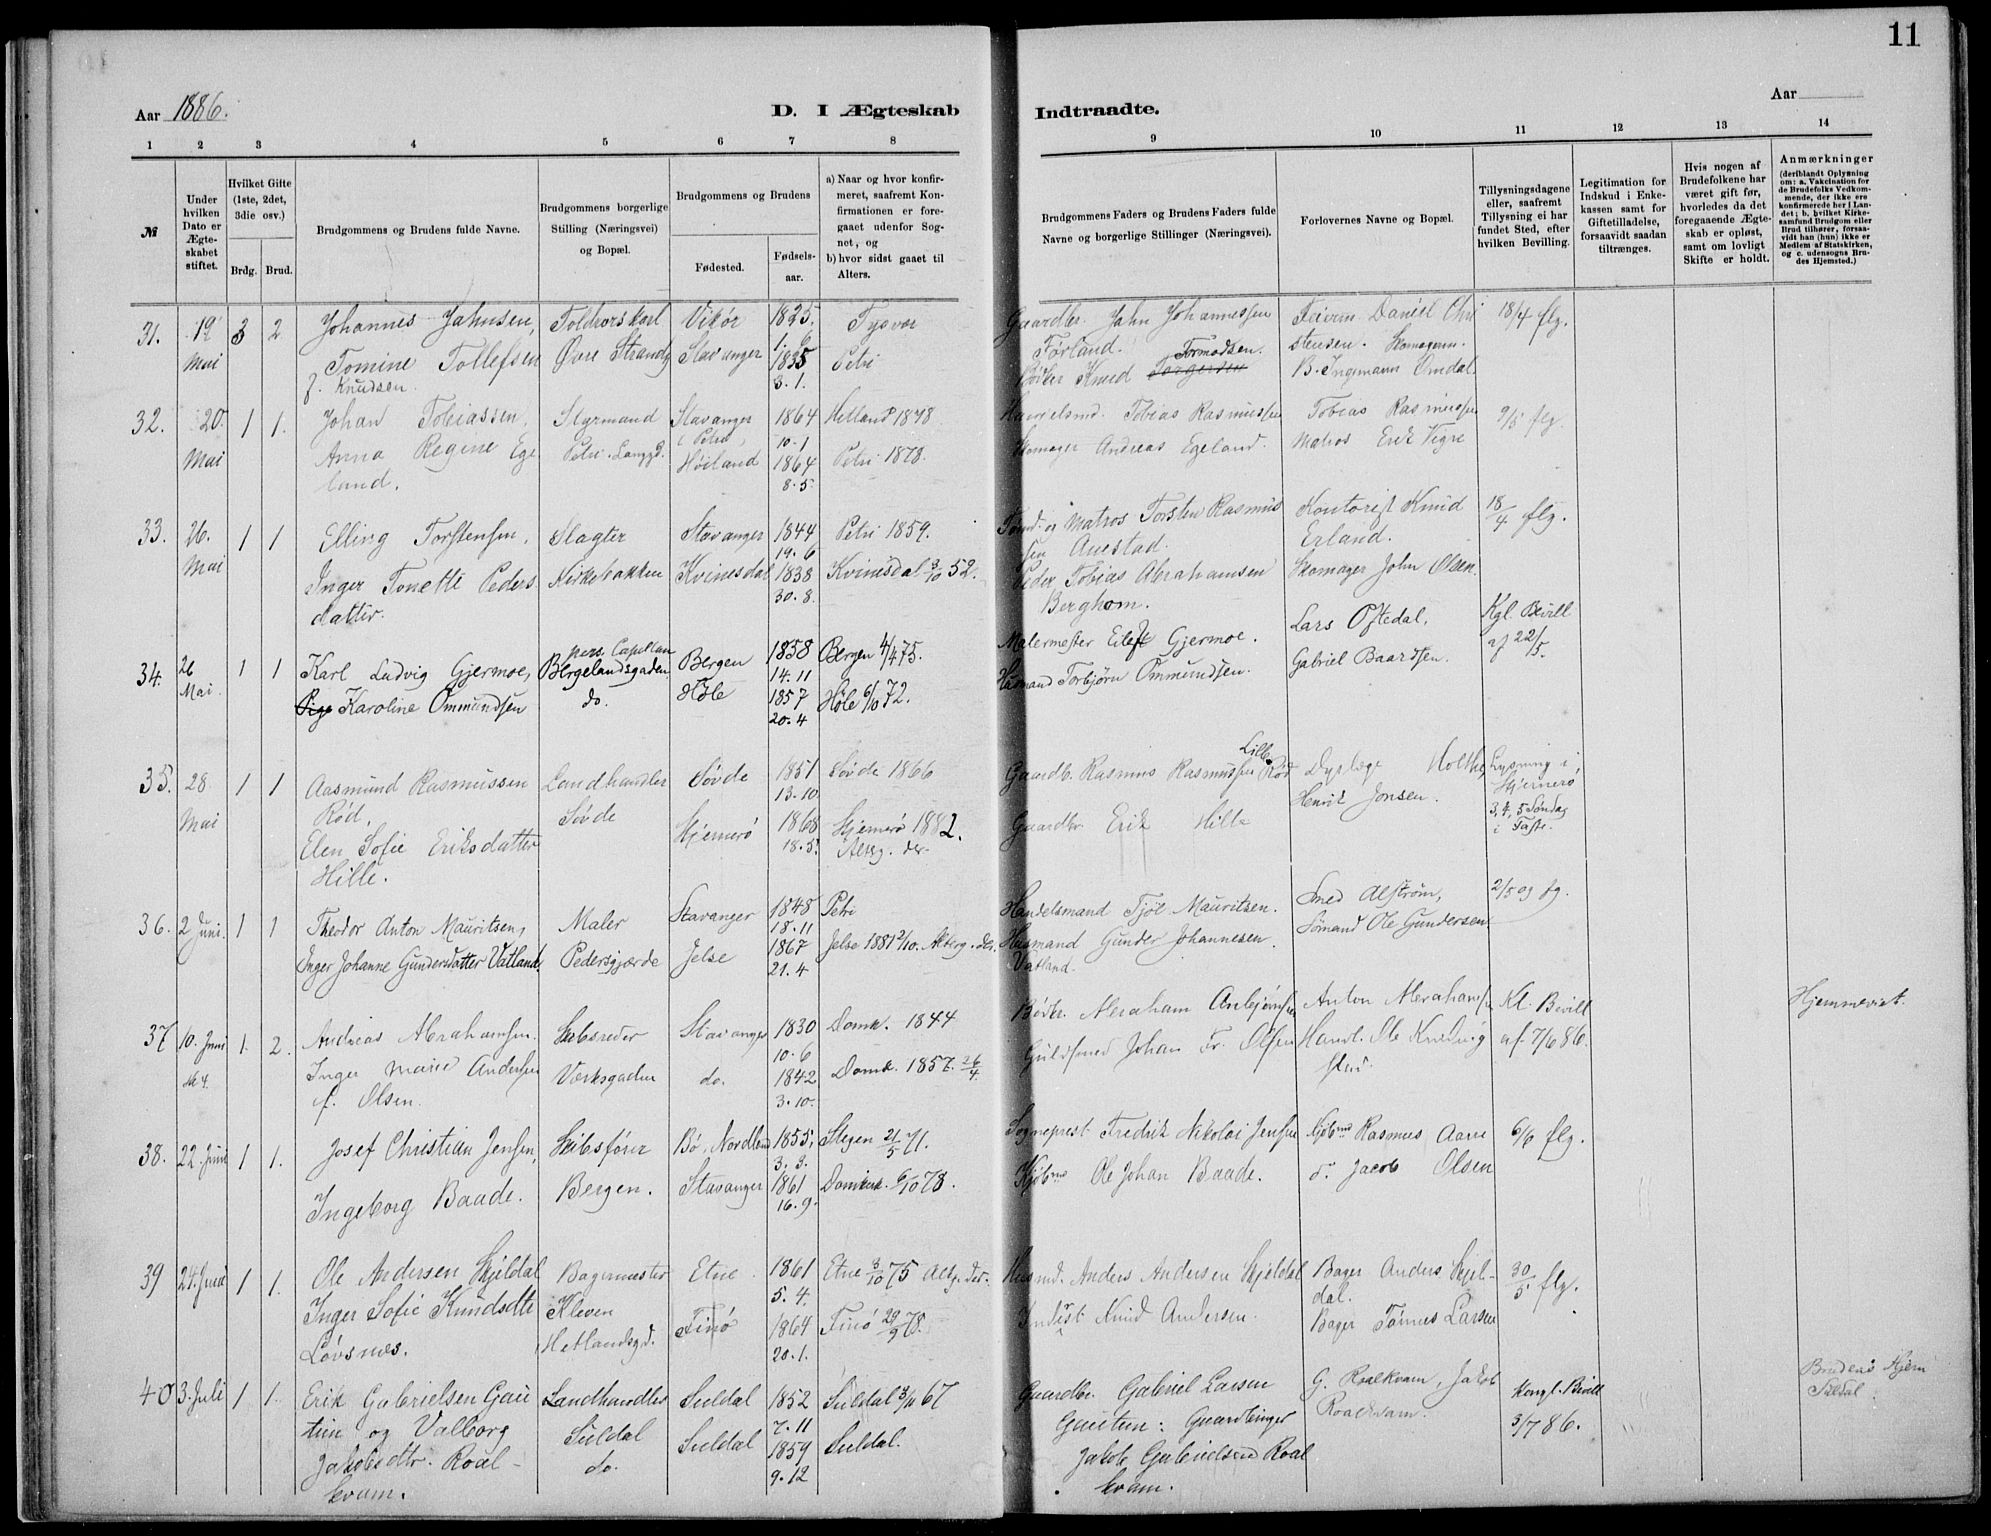 11
Aar 1886.
D. I Ægteskab
Indtraadte.
Aar
1 2 3 4 5 6 7 8
9 10 11 12 13 14
№
Under hvilken Dato er Ægteskabet stiftet.
Hvilket Gifte (1ste, 2det, 3die osv.)
Brdg. Brud.
Brudgommens og Brudens fulde Navne.
Brudgommens borgerlige Stilling (Næringsvei) og Bopæl.
Brudgommens og Brudens
Fødested.
Fødselsaar.
a) Naar og hvor konfirmeret, saafremt Konfirmationen er foregaaet udenfor Sognet, og
b) hvor sidst gaaet til Alters.
Brudgommens Faders og Brudens Faders fulde Navne og borgerlige Stillinger (Næringsvei).
Forlovernes Navne og Bopæl.
Tillysningsdagene eller, saafremt Tillysning ei har fundet Sted, efter hvilken Bevilling.
Legitimation for Indskud i Enkekassen samt for Giftetilladelse, forsaavidt saadan tiltrænges.
Hvis nogen af Brudefolkene har været gift før, hvorledes da det foregaaende Ægteskab er opløst, samt om lovligt Skifte er holdt.
Anmærkninger
(deriblandt Oplysning om: a. Vakcination for de Brudefolks Vedkommende, der ikke ere konfirmerede her i Landet; b. hvilket Kirkesamfund Brudgom eller Brud tilhører, forsaavidt han (hun) ikke er Medlem af Statskirken, og c. udensogns Brudes Hjemsted.)
31. 19 Mai 3 2
Johannes Jahnsen,
Tomine Tollefsen
f. Knudsen.
Øvre Strandg
Vikør 1825. 1. 6 Tysvær
Stavanger 1835 3. 1. Petri
Gaardbr. Jahn Johannessen
Førland.
Tormodsen.
Bødker Knud
Daniel Christensen. Skomagerm.
B. Ingemann Omdal
18/4 flg.
32. 20. Mai 1 1.
Johan Tobiassen,
Anna Regine Egeland.
Styrmand
Petri. Langgd.
Stavanger
Petri
Høiland
1864
10-1
1864
8-5
Hetland 1878
Petri 1878.
Tobias Rasmussen
Skomager Andreas Egeland.
Tobias Rasmussen
Matros Erik Vigre
9/5 flg.
33. 26. Mai 1 1
Elling Torstensen,
Inger Tonette Pedersdatter.
Slagter
Kirkebakken
Stavanger
Kvinesdal
1844
19. 6
1838
30. 8.
Petri 1859.
Kvinesdal 3/10 52.
og Matros Torsten Rasmussen
Auestad.
Peder Tobias Abrahamsen
Berghom.
Kontorist Knud
Erland.
Skomager John Olsen.
18/4 flg.
34. 26 Mai. 1 1
Karl Ludvig Gjermoe,
Pige Karoline Ommundsen
pers. Capellan
Bergelandsgaden
do.
Bergen
Høle
1858
14. 11
1857
20. 4
Bergen 4/4 75.
Høle 6/10 72.
Malermester Eilef Gjermoe.
Husmand Torbjørn Ommundsen.
Lars Oftedal,
Gabriel Baardsen.
Kgl. Bevill
af 22/5.
35. 28. Mai 1 1
Aasmund Rasmussen
Rød,
Elen Sofie Eriksdatter
Hille.
Landhandler
Søvde
Søvde
Hjernerø
1851
13. 10
1868
18. 5.
Søvde 1866
Hjernerø 1882.
Altsg. der.
Gaardb. Rasmus Rasmussen Lille Rød
Gaardbr Erik Hille
Dyrlæge Holthe
Henrik Jonsen.
Lysning i
Hjernerø
3, 4, 5 Søndag
i Faste.
36. 2 Juni. 1 1
Theodor Anton Mauritsen,
Inger Johanne Gundersdatter Vatland.
Maler
Pedersgjærde
Stavanger
Jelse
1848
18. 11
1867
21. 4
Petri
Jelse 1881 2/10. Altberg. der.
Handelsmand Tjøl Mauritsen.
Husmand Gunder Johannesen.
Vatland.
Smed Alstrøm,
Sømand Ole Gundersen.
2/5 og fg.
37 10. Juni 1. 2.
Andreas Abrahamsen.
Inger Marie Andersen
f. Olsen.
Skibsreder
Værksgaden
Stavanger
do.
1830
10. 6
1842
3. 10.
Domk. 1844
Domk. 1857. 26/4.
Bødkr. Abraham Anbjørnsen
Guldsmed Johan Fr. Olsen
Anton Abrahamsen
Handl. Ole Knudvig
Kl. Bevill
af 7/6 86.
Hjemmeviet.
38. 22. Juni 1 1.
Josef Christian Jensen,
Ingeborg Baade.
Skibsfører
Bergen.
Bø, Nordland
Stavanger
1855.
3. 3.
1861
16. 9.
Stegen 21/5 71.
Domkirk. 6/10 78.
Sogneprest Fredrik Nikolai Jensen
Kjøbmd Ole Johan Baade.
Kjøbmd Rasmus Aarre
do Jacob Olsen
6/6 flg.
39 24. Juni 1 1.
Ole Andersen Skjeldal
Inger Sofie Knudsdtr
Løvsnes.
Bagermester
Kleven
Hetlandsgd.
Etne
Finø
1861
5. 4.
1864
20. 1.
Etne 3/10 75 Altg. der.
Finø 29/9 78.
Husmd. Anders Andersen Skjeldal
Inderst Knud Andersen.
Bager Anders Skjeldal.
Bager Tønnes Larsen
30/5 flg.
40 3. Juli 1 1.
Erik Gabrielsen Gautun og Valborg
Jakobsdtr. Roalkvam.
Landhandler
Suldal
do.
Suldal
Suldal
1852
7. 11
1859
9. 12
Suldal 3/11 67
Suldal.
Gaardbr. Gabriel Larsen
Gautun: Gaardbruger
Jakob Gabrielsen Roalkvam.
G. Roalkvam, Jakob
Roalkvam.
Kongl. Bevill
3/7 86.
Brudens Hjem
Suldal.